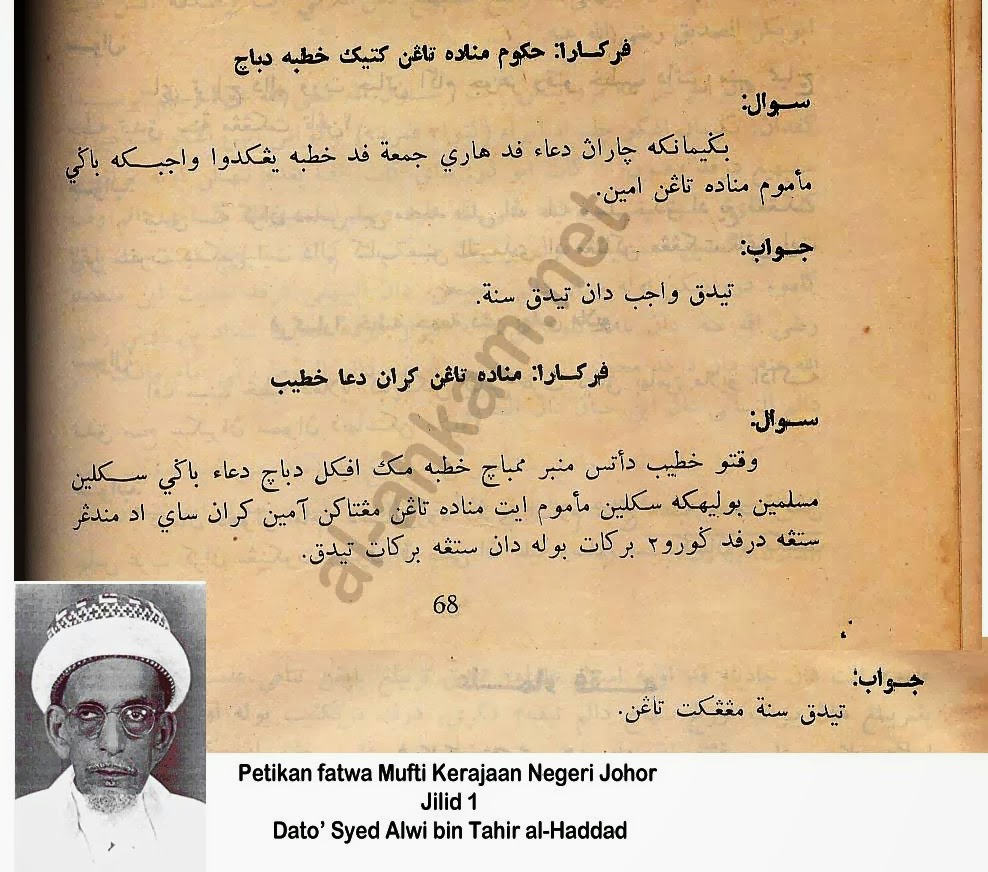 فركارا: حكوم مناده تاڠن كتيك خطبه دباچ
سوال:
بڬيمانكه چاراڽ دعاء فد هاري جمعة فد خطبه يڠكدوا واجبكه باڬي
مأموم مناده تاڠن امين.
جواب:
تيدق واجب دان تيدق سنة.
فركارا: مناده تاڠن كران دعا خطيب
سوال:
وقتو خطيب دأتس منبر ممباچ خطبه مك افكل دباچ دعاء باڬي سكلين
مسلمين بوليهكه سكلين مأموم ايت مناده تاڠن مڠتاكن آمين كران ساي اد مندڠر
ستڠه درفد ڬورو٢ بركات بوله دان ستڠه بركات تيدق.
68
جواب:
تيدق سنة مڠڠكت تاڠن.
al-ahkam.net
Petikan fatwa Mufti Kerajaan Negeri Johor
Jilid 1
Dato’ Syed Alwi bin Tahir al-Haddad